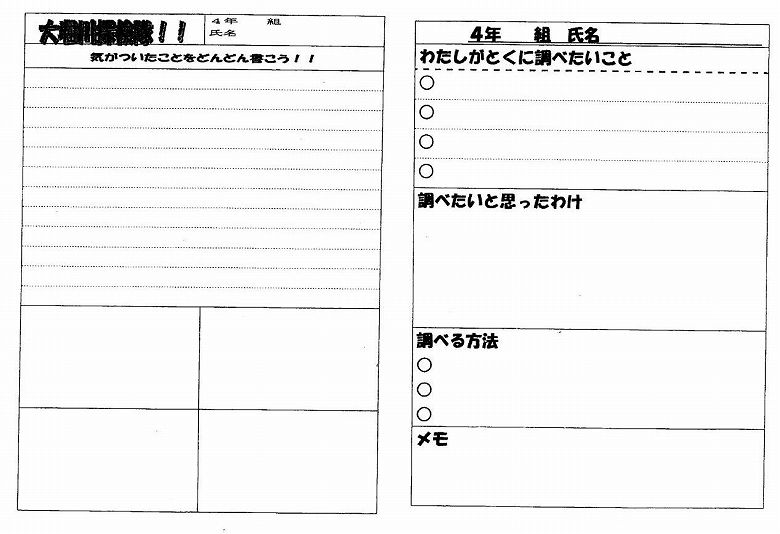 大堀川探検隊！！
4年　　組
氏名
気がついたことをどんどん書こう！！
4年　　組　氏名
わたしがとくに調べたいこと
○
○
○
○
調べたいと思ったわけ
調べる方法
○
○
○
メモ